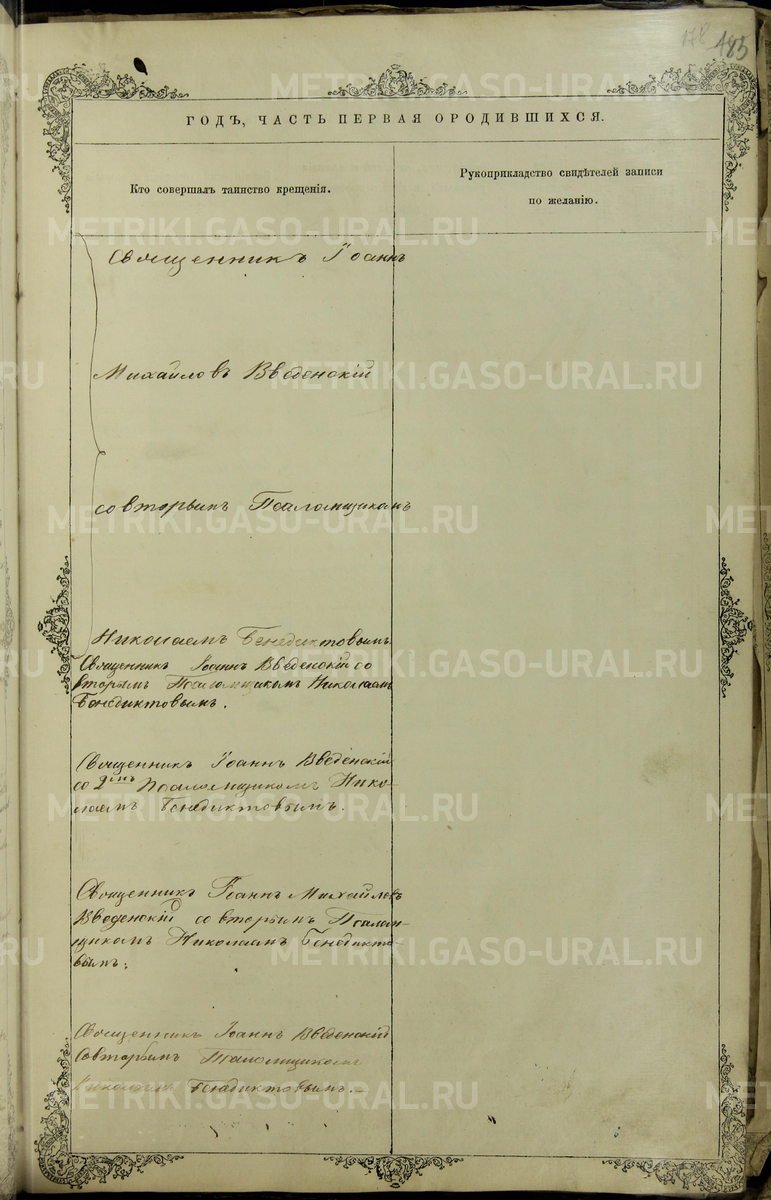 185
ГОДЪ, ЧАСТЬ ПЕРВАЯ ОРОДИВШИХСЯ.
Кто совершалъ таинство крещенія.
Рукоприкладство свидѣтелей записи
по желанію.
Священникъ Іоаннъ
Михайловъ Введенскій
со вторымъ Псаломщикомъ
Николаемъ Бенедиктовымъ.
Священникъ Іоаннъ Введенскій со
вторымъ Псаломщикомъ Николаемъ
Бенедиктовымъ.
Священникъ Іоаннъ Введенскій
со 2мъ Псаломщикомъ Нико-
лаемъ Бенедиктовымъ.
Священникъ Іоаннъ Михайловъ
Введенскій со вторымъ Псалом-
щикомъ Николаемъ Бенедикто-
вымъ.
Священникъ Іоаннъ Введенскій
со вторымъ Псаломщикомъ
Николаемъ Бенедиктовымъ.
METRIKI.GASO-URAL.RU